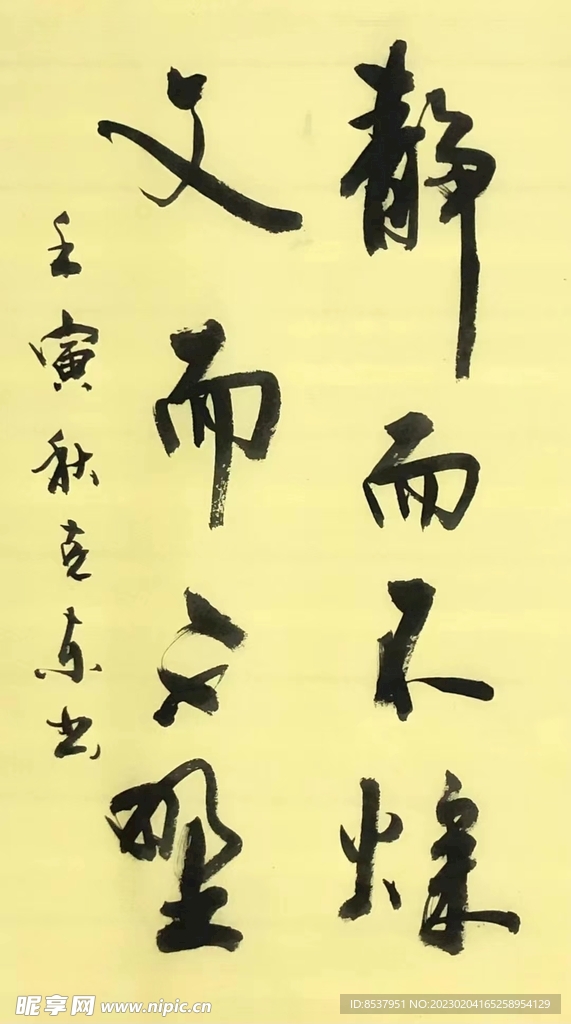 静而不燥
文而不野
壬寅秋克东书
昵享网 www.nipic.cn
ID:8537951 NO:20230204165258954129